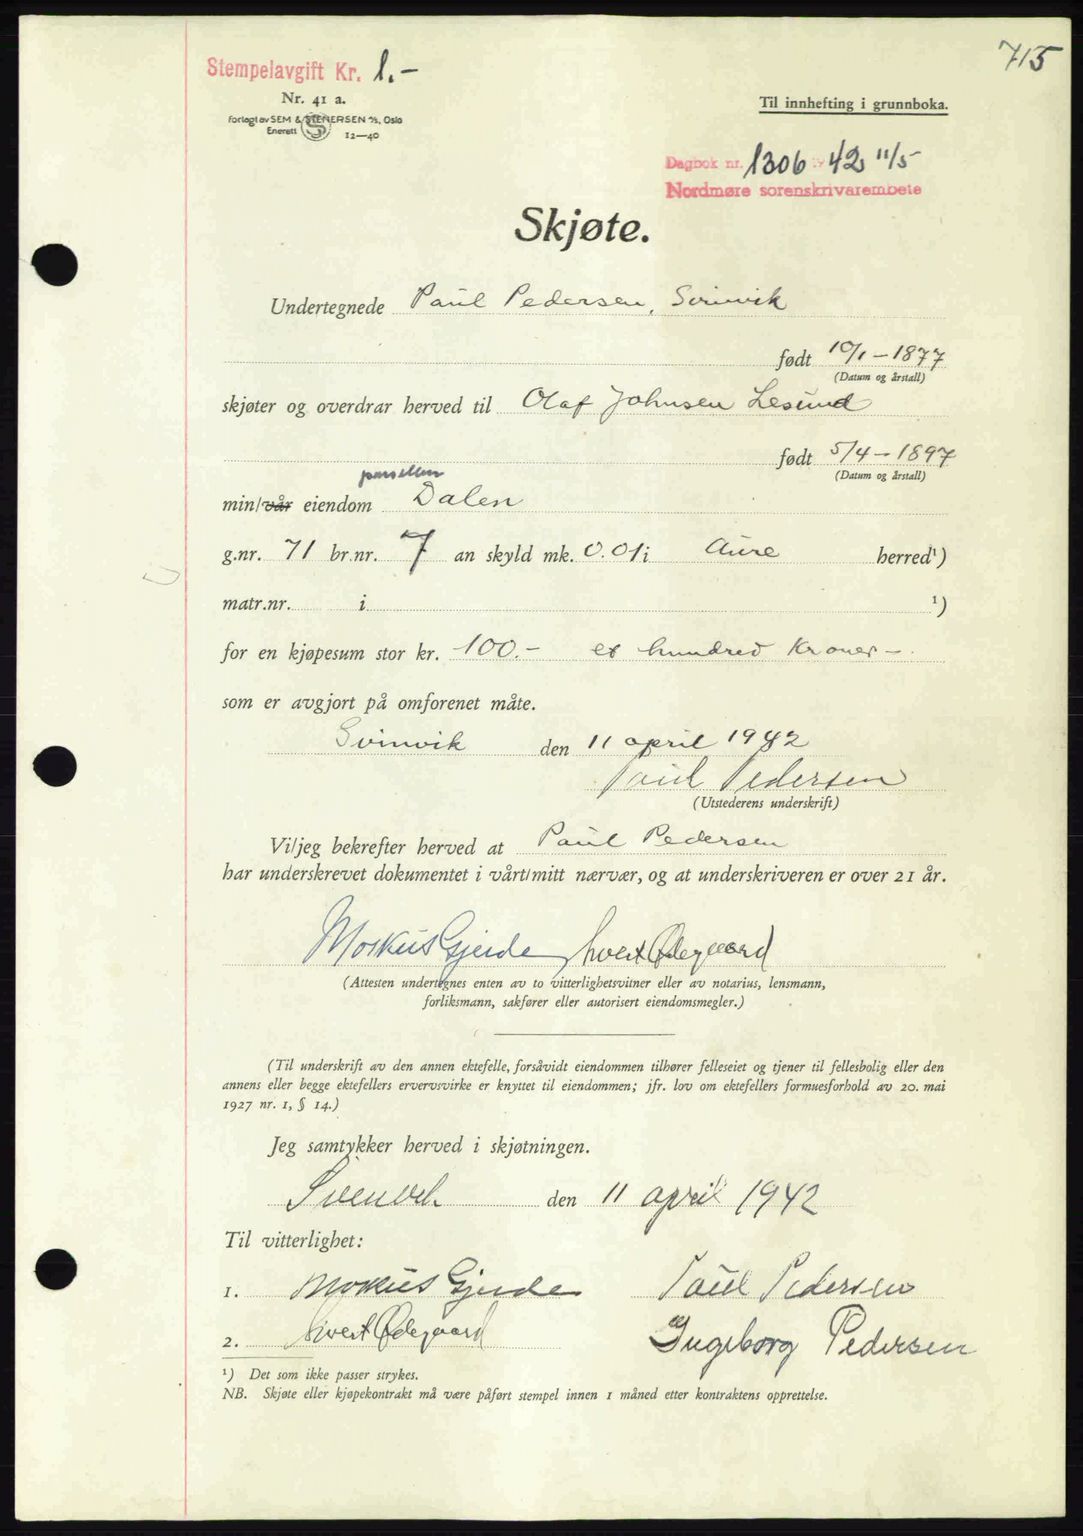 715
Stempelavgift Kr. 1.-
Nr. 41 a.
Forlagt av SEM & STENERSEN A/S, Oslo
Enerett 12—40
Til innhefting i grunnboka.
Dagbok nr. 1306 19 42 11/5
Nordmøre sorenskrivarembete
Skjøte.
Undertegnede Paul Pedersen, Svinvik
født 10/1 - 1877
(Datum og årstall)
skjøter og overdrar herved til Olaf Johnsen Lesund
født 5/4 - 1897
(Datum og årstall)
parsellen
min/vår eiendom Dalen
g.nr. 71 br.nr. 7 an skyld mk. 0.01 i Aure herred¹)
matr.nr. i ¹)
for en kjøpesum stor kr. 100.- et hundred Kroner -.
som er avgjort på omforenet måte.
Svinvik den 11 april 1942
Paul Pedersen
(Utstederens underskrift)
Vi/jeg bekrefter herved at Paul Pedersen
har underskrevet dokumentet i vårt/mitt nærvær, og at underskriveren er over 21 år.
Markus Gjerde Ødegaard
(Attesten undertegnes enten av to vitterlighetsvitner eller av notarius, lensmann,
forliksmann, sakfører eller autorisert eiendomsmegler.)
(Til underskrift av den annen ektefelle, forsåvidt eiendommen tilhører felleseiet og tjener til fellesbolig eller den
annens eller begge ektefellers ervervsvirke er knyttet til eiendommen; jfr. lov om ektefellers formuesforhold av 20. mai
1927 nr. 1, § 14.)
Jeg samtykker herved i skjøtningen.
Svinvik den 11 april 1942
Til vitterlighet:
1. Markus Gjerde Paul Pedersen
2. Ødegaard Ingeborg Pedersen
¹) Det som ikke passer strykes.
NB. Skjøte eller kjøpekontrakt må være påført stempel innen 1 måned etter kontraktens opprettelse.